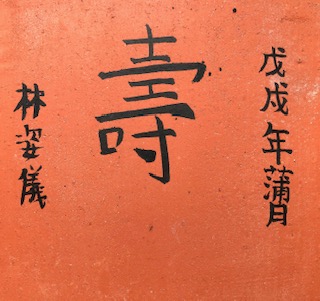 戊戌年蒲月
壽
林姿儀